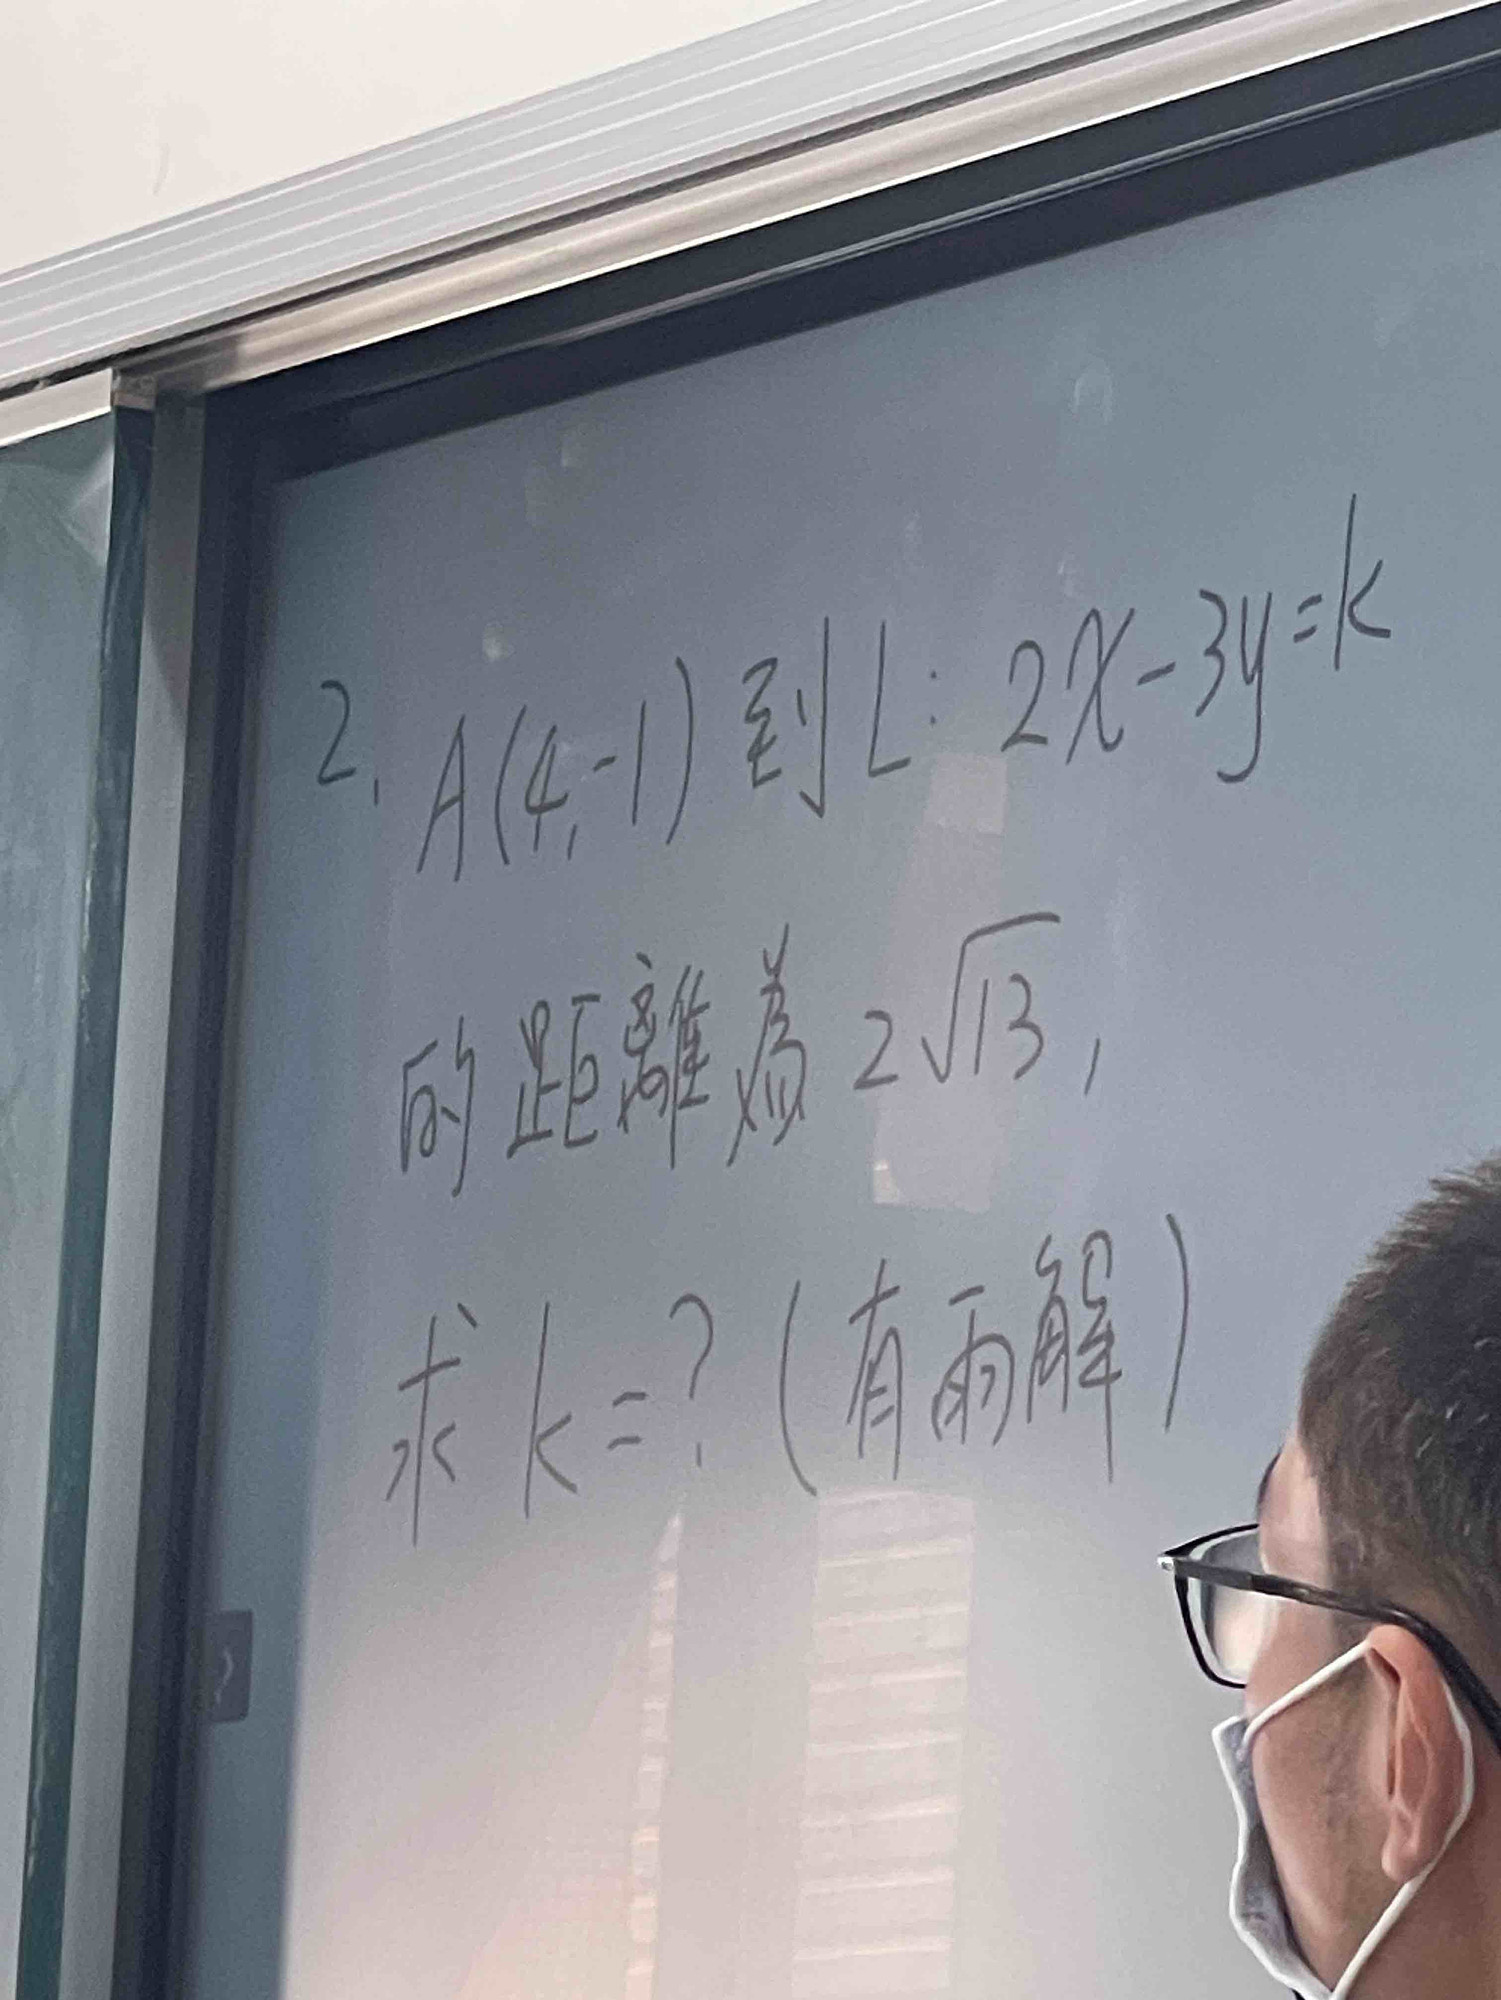 2. A(4,-1)到L: 2x-3y=k
的距離為2√13,
求k=?(有兩解)